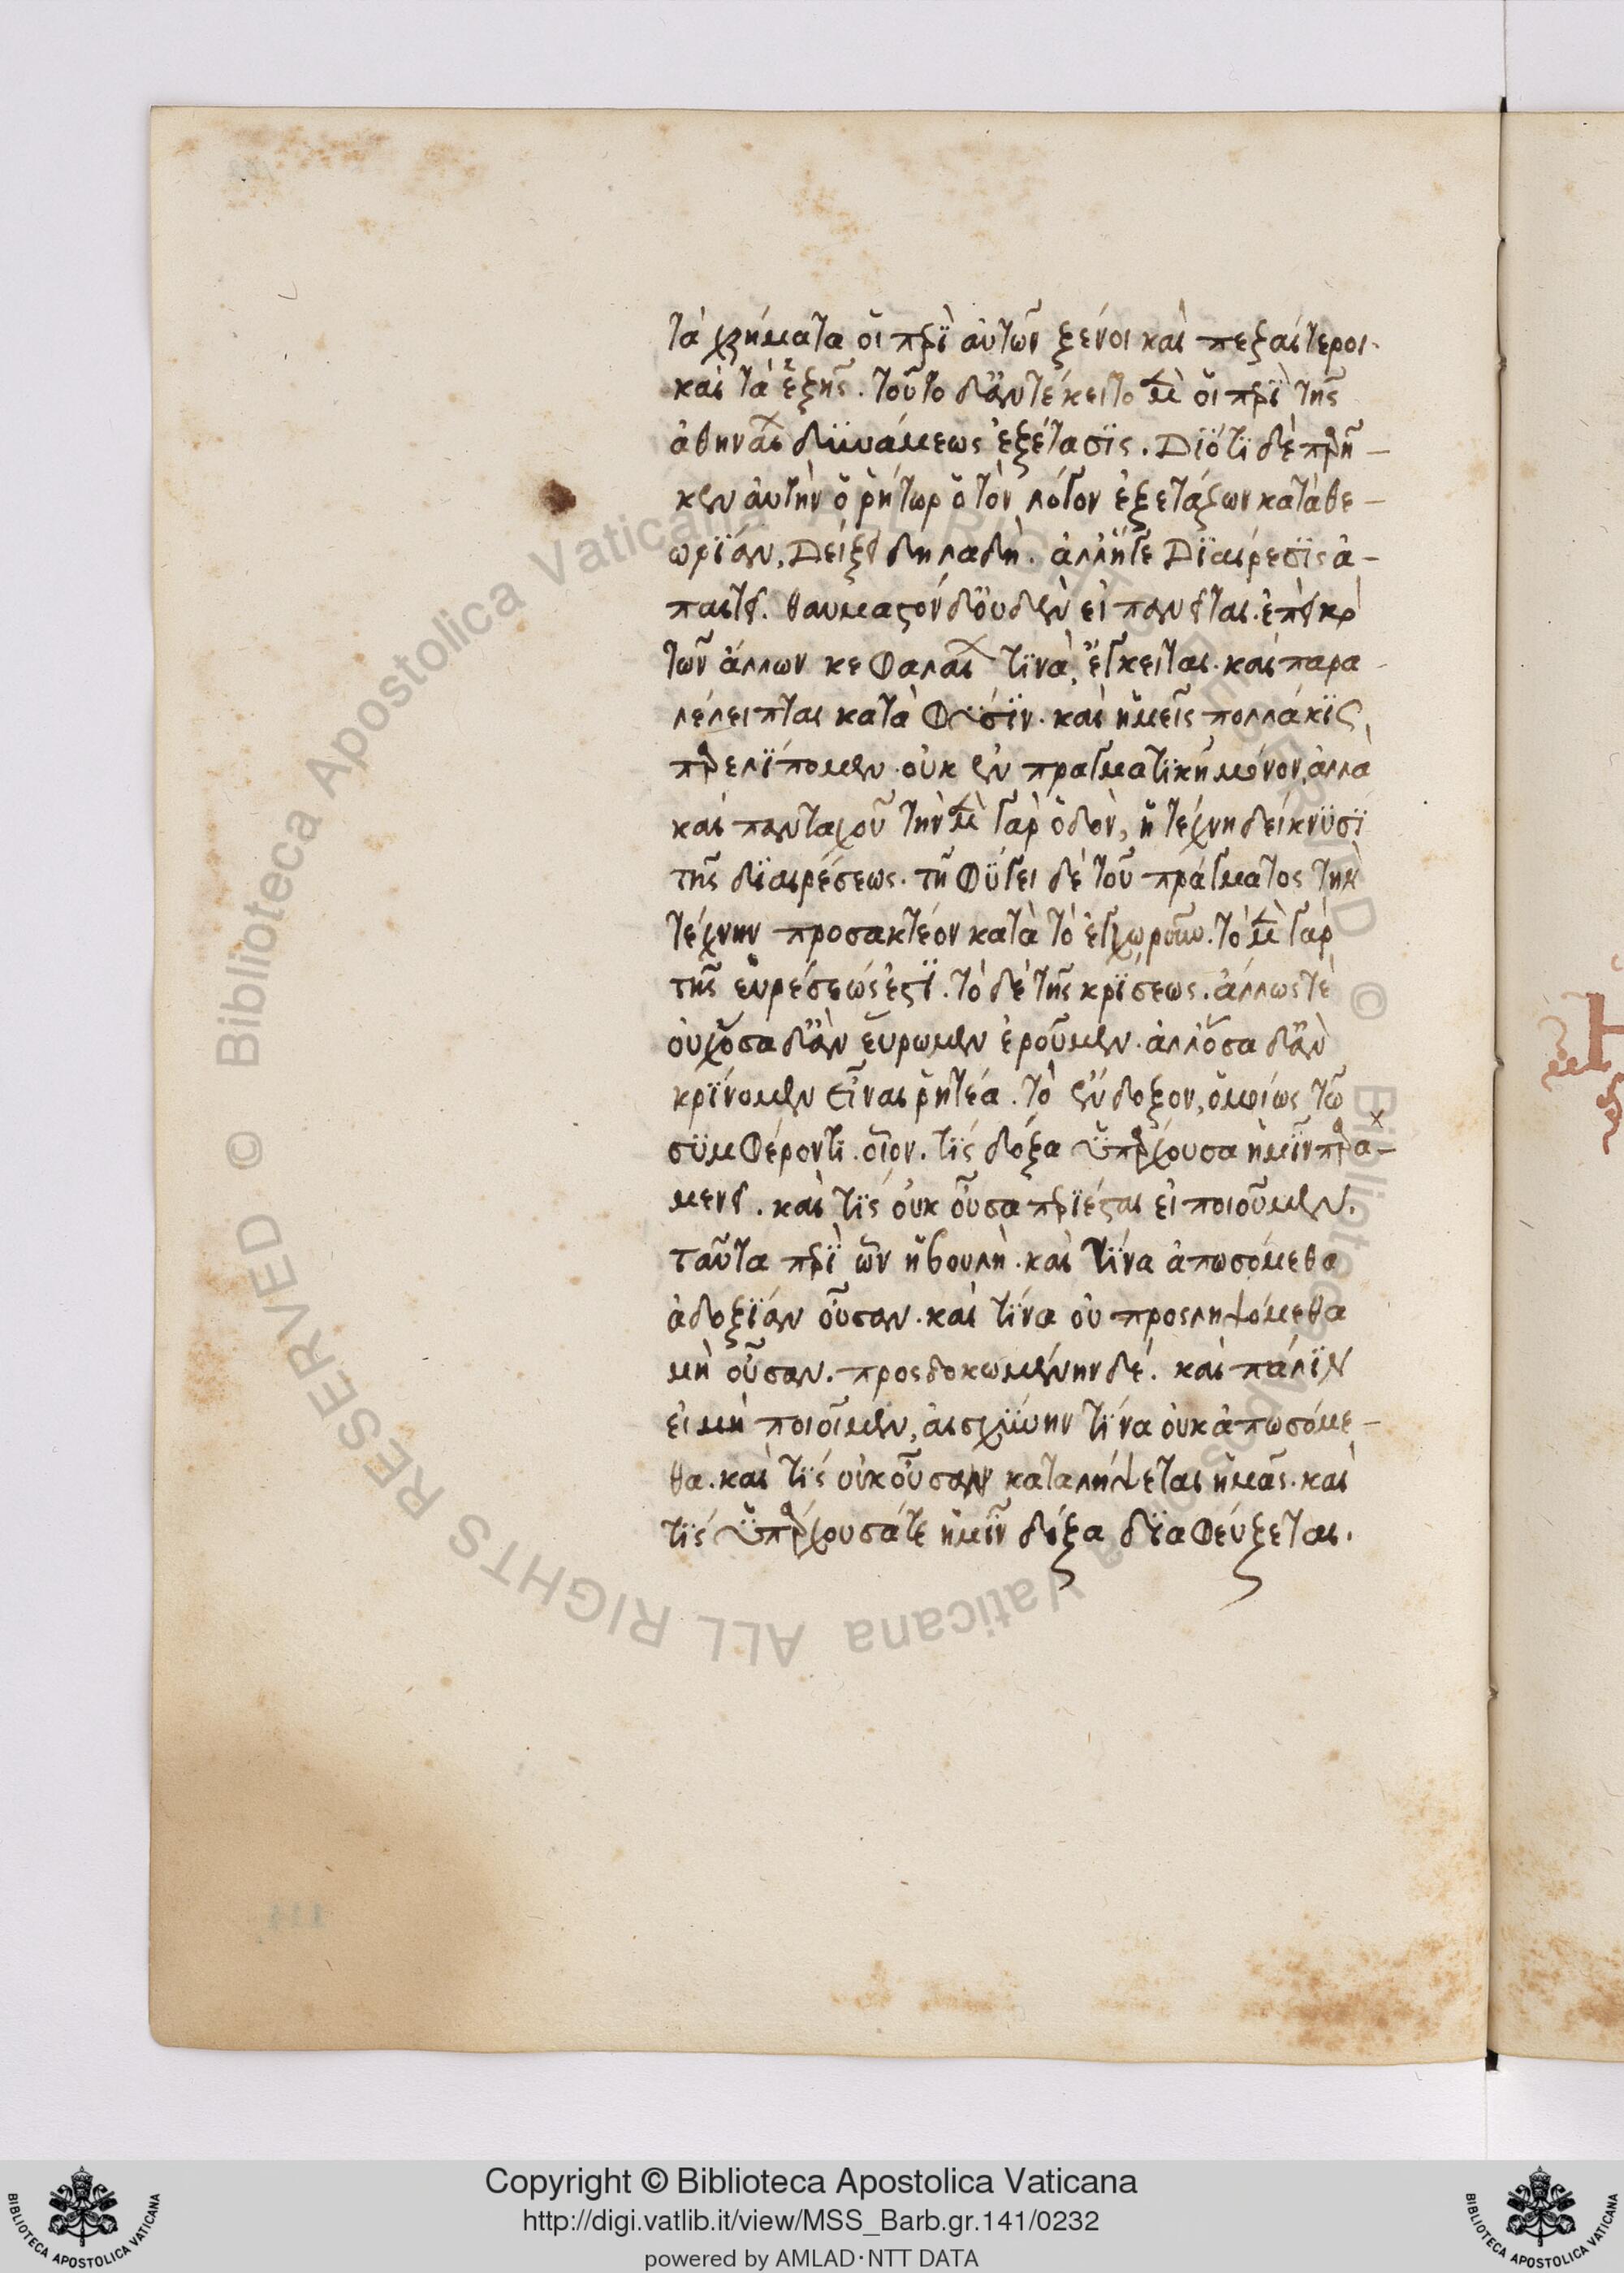 τὰ χρήματα οἱ περὶ αὐτῶν ξένοι καὶ πεξαίτεροι.
καὶ τὰ ἑξῆς. τοῦτο δ' ἀντέκειτο μὲν οἱ περὶ τῆς
ἀθηναίων δυνάμεως ἐξέτασϊς. Διότι δὲ παρῆ-
κεν αὐτὴν ὁ ῥήτωρ ὁ τὸν λόγον ἐξετάζων κατὰ θε-
ωρΐαν, Δείξει δηλαδή. ἀλλ' ἥγε Διαίρεσϊς ἀ-
παιτεῖ. θαυμαστὸν δ' οὐδὲν εἰ πανεται. ἐπεὶ καὶ
τῶν ἄλλων κεφαλαίων τινὰ, ἔγκειται. καὶ παρα
λέλειπται κατὰ φύσϊν. καὶ ἡμεῖς πολλάκϊς
παρελΐπομεν. οὐκ ἐν πραγματϊκῆ μόνον, ἀλλὰ
καὶ πανταχοῦ τὴν μὲν γὰρ ὁδὸν, ἡ τέχνη δείκνϋσϊ
τῆς διαιρέσεως. τῆ φύσει δὲ τοῦ πράγματος τὴν
τέχνην προσακτέον κατὰ τὸ ἐγχωροῦν. τὸ μὲν γὰρ
τῆς εὑρέσεώς ἐστϊ. τὸ δὲ τῆς κρϊσεως. ἄλλως τὲ
οὐχ ὅσα δ' ἂν εὕρωμεν ἐροῦμεν. ἀλλ' ὅσα δ' ἂν
κρΐνομεν εἶναι ῥητέα. τὸ ἔνδοξον, ὁμοίως τῶ
συμφέροντι. οἷον. τΐς δόξα ὑπάρχουσα ἡμῖν παρα-
μενεῖ. καὶ τΐς οὐκ οὖσα περϊέσται εἰ ποιοῦμεν.
ταῦτα περὶ ὧν ἡ βουλὴ. καὶ τΐνα ἀπωσόμεθα
ἀδοξΐαν οὖσαν. καὶ τΐνα οὐ προσληψόμεθα
μὴ οὖσαν. προσδοκωμένην δέ. καὶ πάλϊν
εἰ μὴ ποιοῖμεν, αἰσχύνην τΐνα οὐκ ἀπωσόμε-
θα. καὶ τΐς οὐκ οὖσαν καταλήψεται ἡμᾶς. καὶ
τΐς ὑπάρχουσά τε ἡμῖν δόξα δϊαφεύξεται.
Copyright © Biblioteca Apostolica Vaticana
http://digi.vatlib.it/view/MSS_Barb.gr.141/0232
powered by AMLAD·NTT DATA
BIBLIOTECA APOSTOLICA VATICANA
BIBLIOTECA APOSTOLICA VATICANA
© Biblioteca Apostolica Vaticana ALL RIGHTS RESERVED © Biblioteca Apostolica Vaticana ALL RIGHTS RESERVED